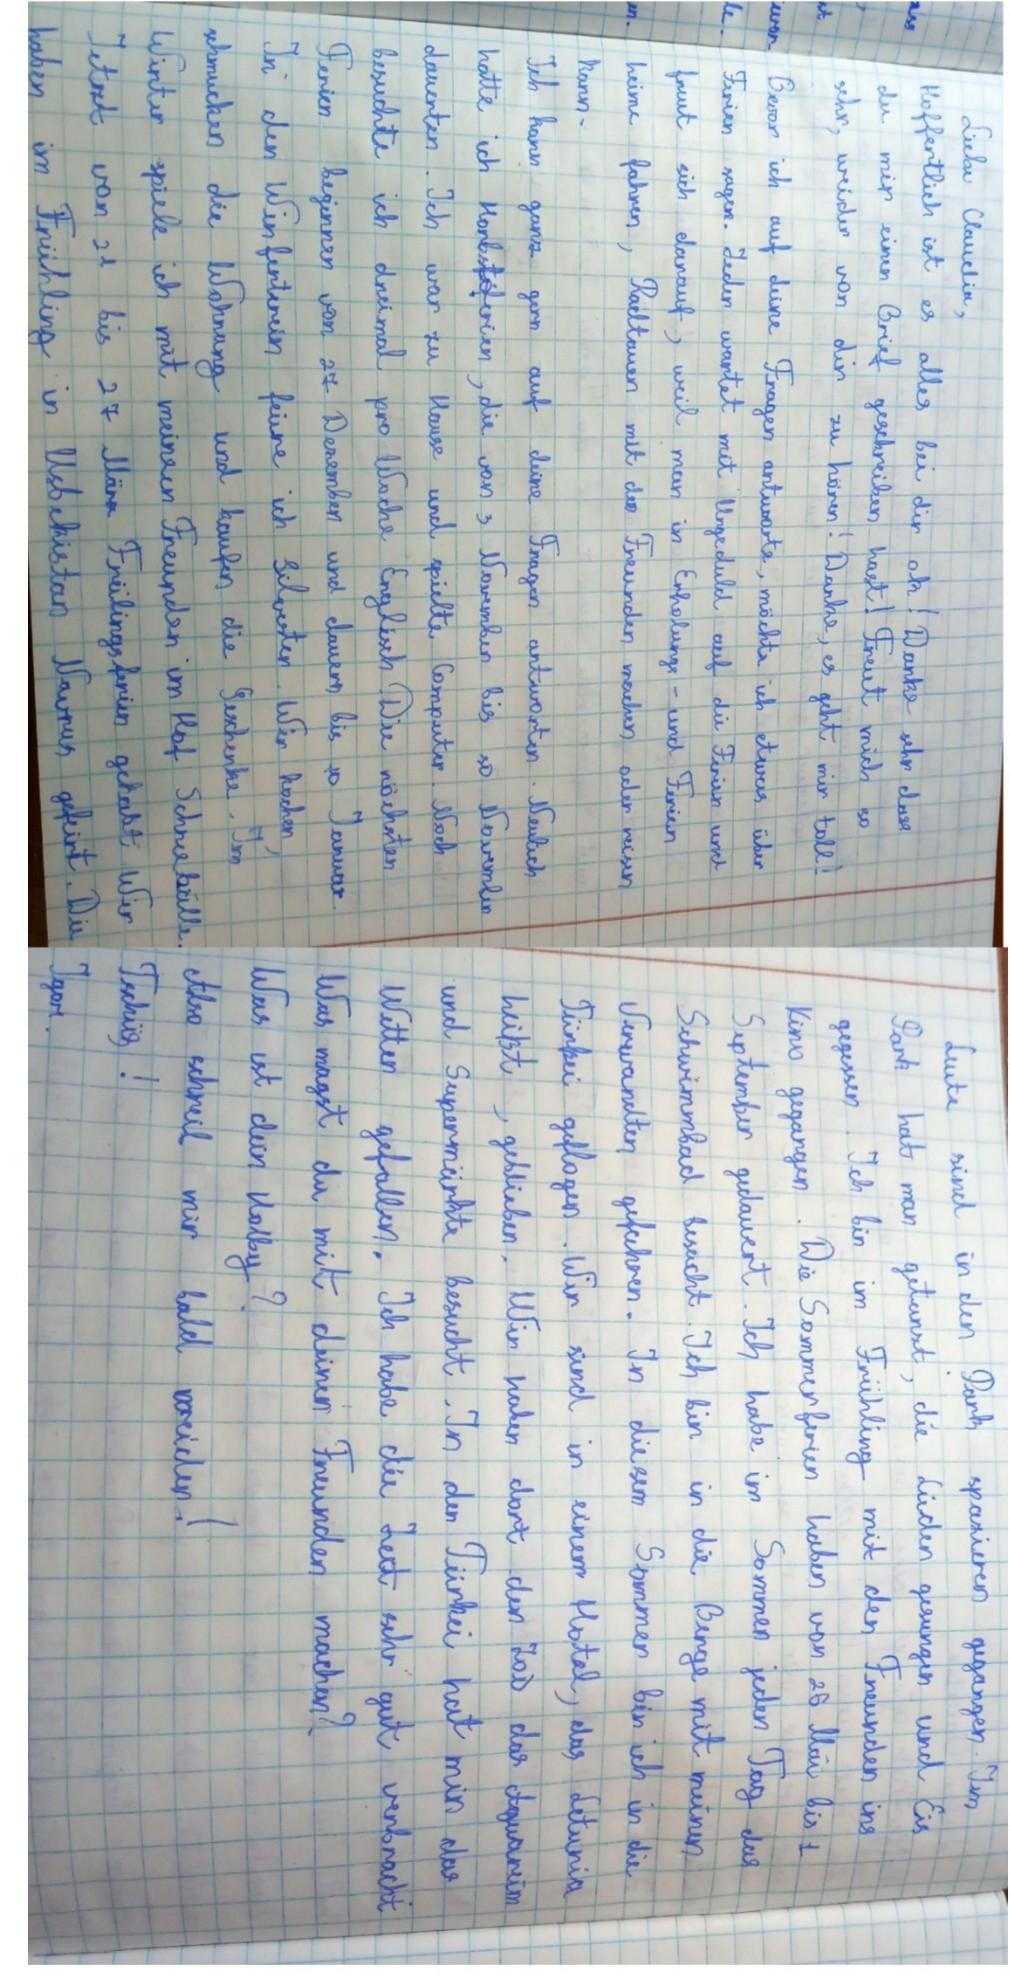 Liebe Claudia,
Hoffentlich ist es alles bei dir ok! Danke sehr dass
du mir einen Brief geschreiben hast! Freut mich so
sehr, weider von dir zu hören! Danke, es geht mir toll!
Bevor ich auf deine Fragen antworte, möchte ich etwas über
Ferien sagen. Jeder wartet mit Ungeduld auf die Ferien und
freut sich darauf, weil man in Erholungs- und Ferien
heime fahren, Radtouren mit den Freunden machen oder reisen
kann.
Ich kann ganz gern auf deine Fragen antworten. Neulich
hatte ich Herbstferien, die von 3 November bis 10 November
dauerten. Ich war zu Hause und spielte Computer. Noch
besuchte ich dreimal pro Woche Englisch. Die nächsten
Ferien beginnen von 27 Dezember und dauern bis 10 Januar.
In den Winferterein feiere ich Silvester. Wir kochen,
schmucken die Wohnung und kaufen die Geschenke. Im
Winter spiele ich mit meinen Freunden im Hof Schneebälle.
Jetzt von 21 bis 27 März Früilingsferien gehabt. Wir
haben im Früihling in Usbekistan Navrus gefeirt. Die
Leute sind in den Park spazieren gegangen. Im
Park hat man getanzt, die Lieder gesungen und Eis
gegessen. Ich bin im Frühling mit den Freunden ins
Kino gegangen. Die Sommerferien haben von 26 Mai bis 1
September gedauert. Ich habe im Sommer jeden Tag das
Schwimmbad besucht. Ich bin in die Berge mit meinen
Verwandten gefahren. In diesem Sommer bin ich in die
Türkei geflogen. Wir sind in einem Hotel, das Letunia
heißt, geblieben. Wir haben dort den Zoo das Aquareim
und Supermärkte besucht. In der Türkei hat mir das
Wetter gefallen. Ich habe die Zeit sehr gut verbracht
Was magst du mit deinen Freunden machen?
Was ist dein Hobby?
Also schreib mir bald weider!
Tschüs!
Igor.